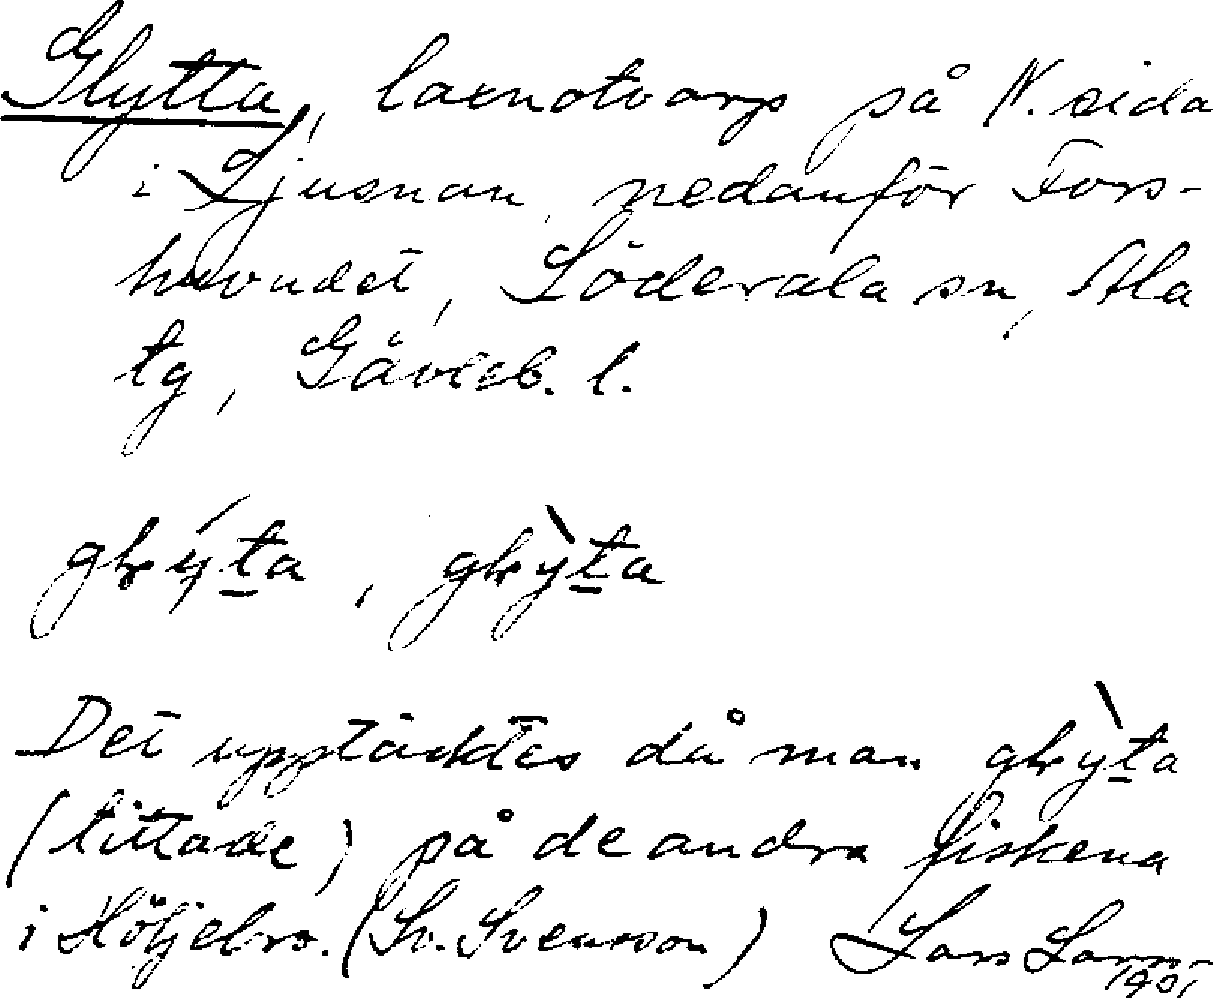 Glytta, laxnotvarp på N. sida
i Ljusnan, nedanför Fors-
huvudet, Söderala sn, Ala
tg, Gävleb. l.
glýta, glỳta
Det upptäcktes då man glỳta
(tittade) på de andra fiskena
i Höljebro. (Sv. Svensson) Lars Lars-